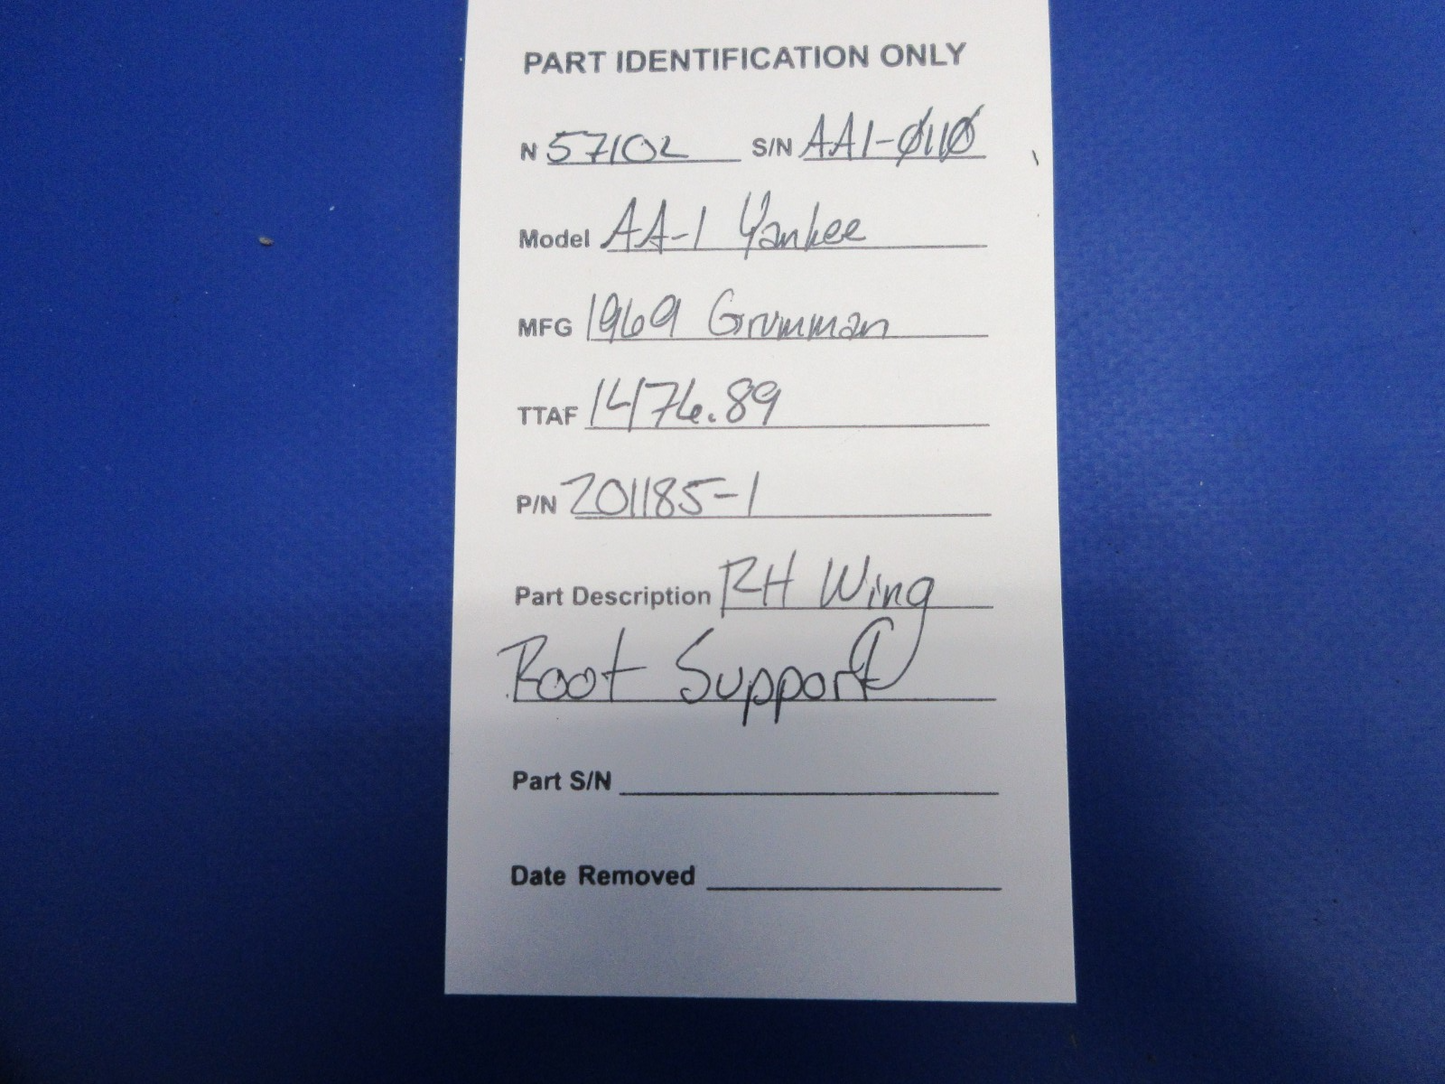 PART IDENTIFICATION ONLY
N 57102 S/N AA1-0110
Model AA-1 Yankee
MFG 1969 Grumman
TTAF 1476.89
P/N 201185-1
Part Description RH Wing
Root Support
Part S/N
Date Removed